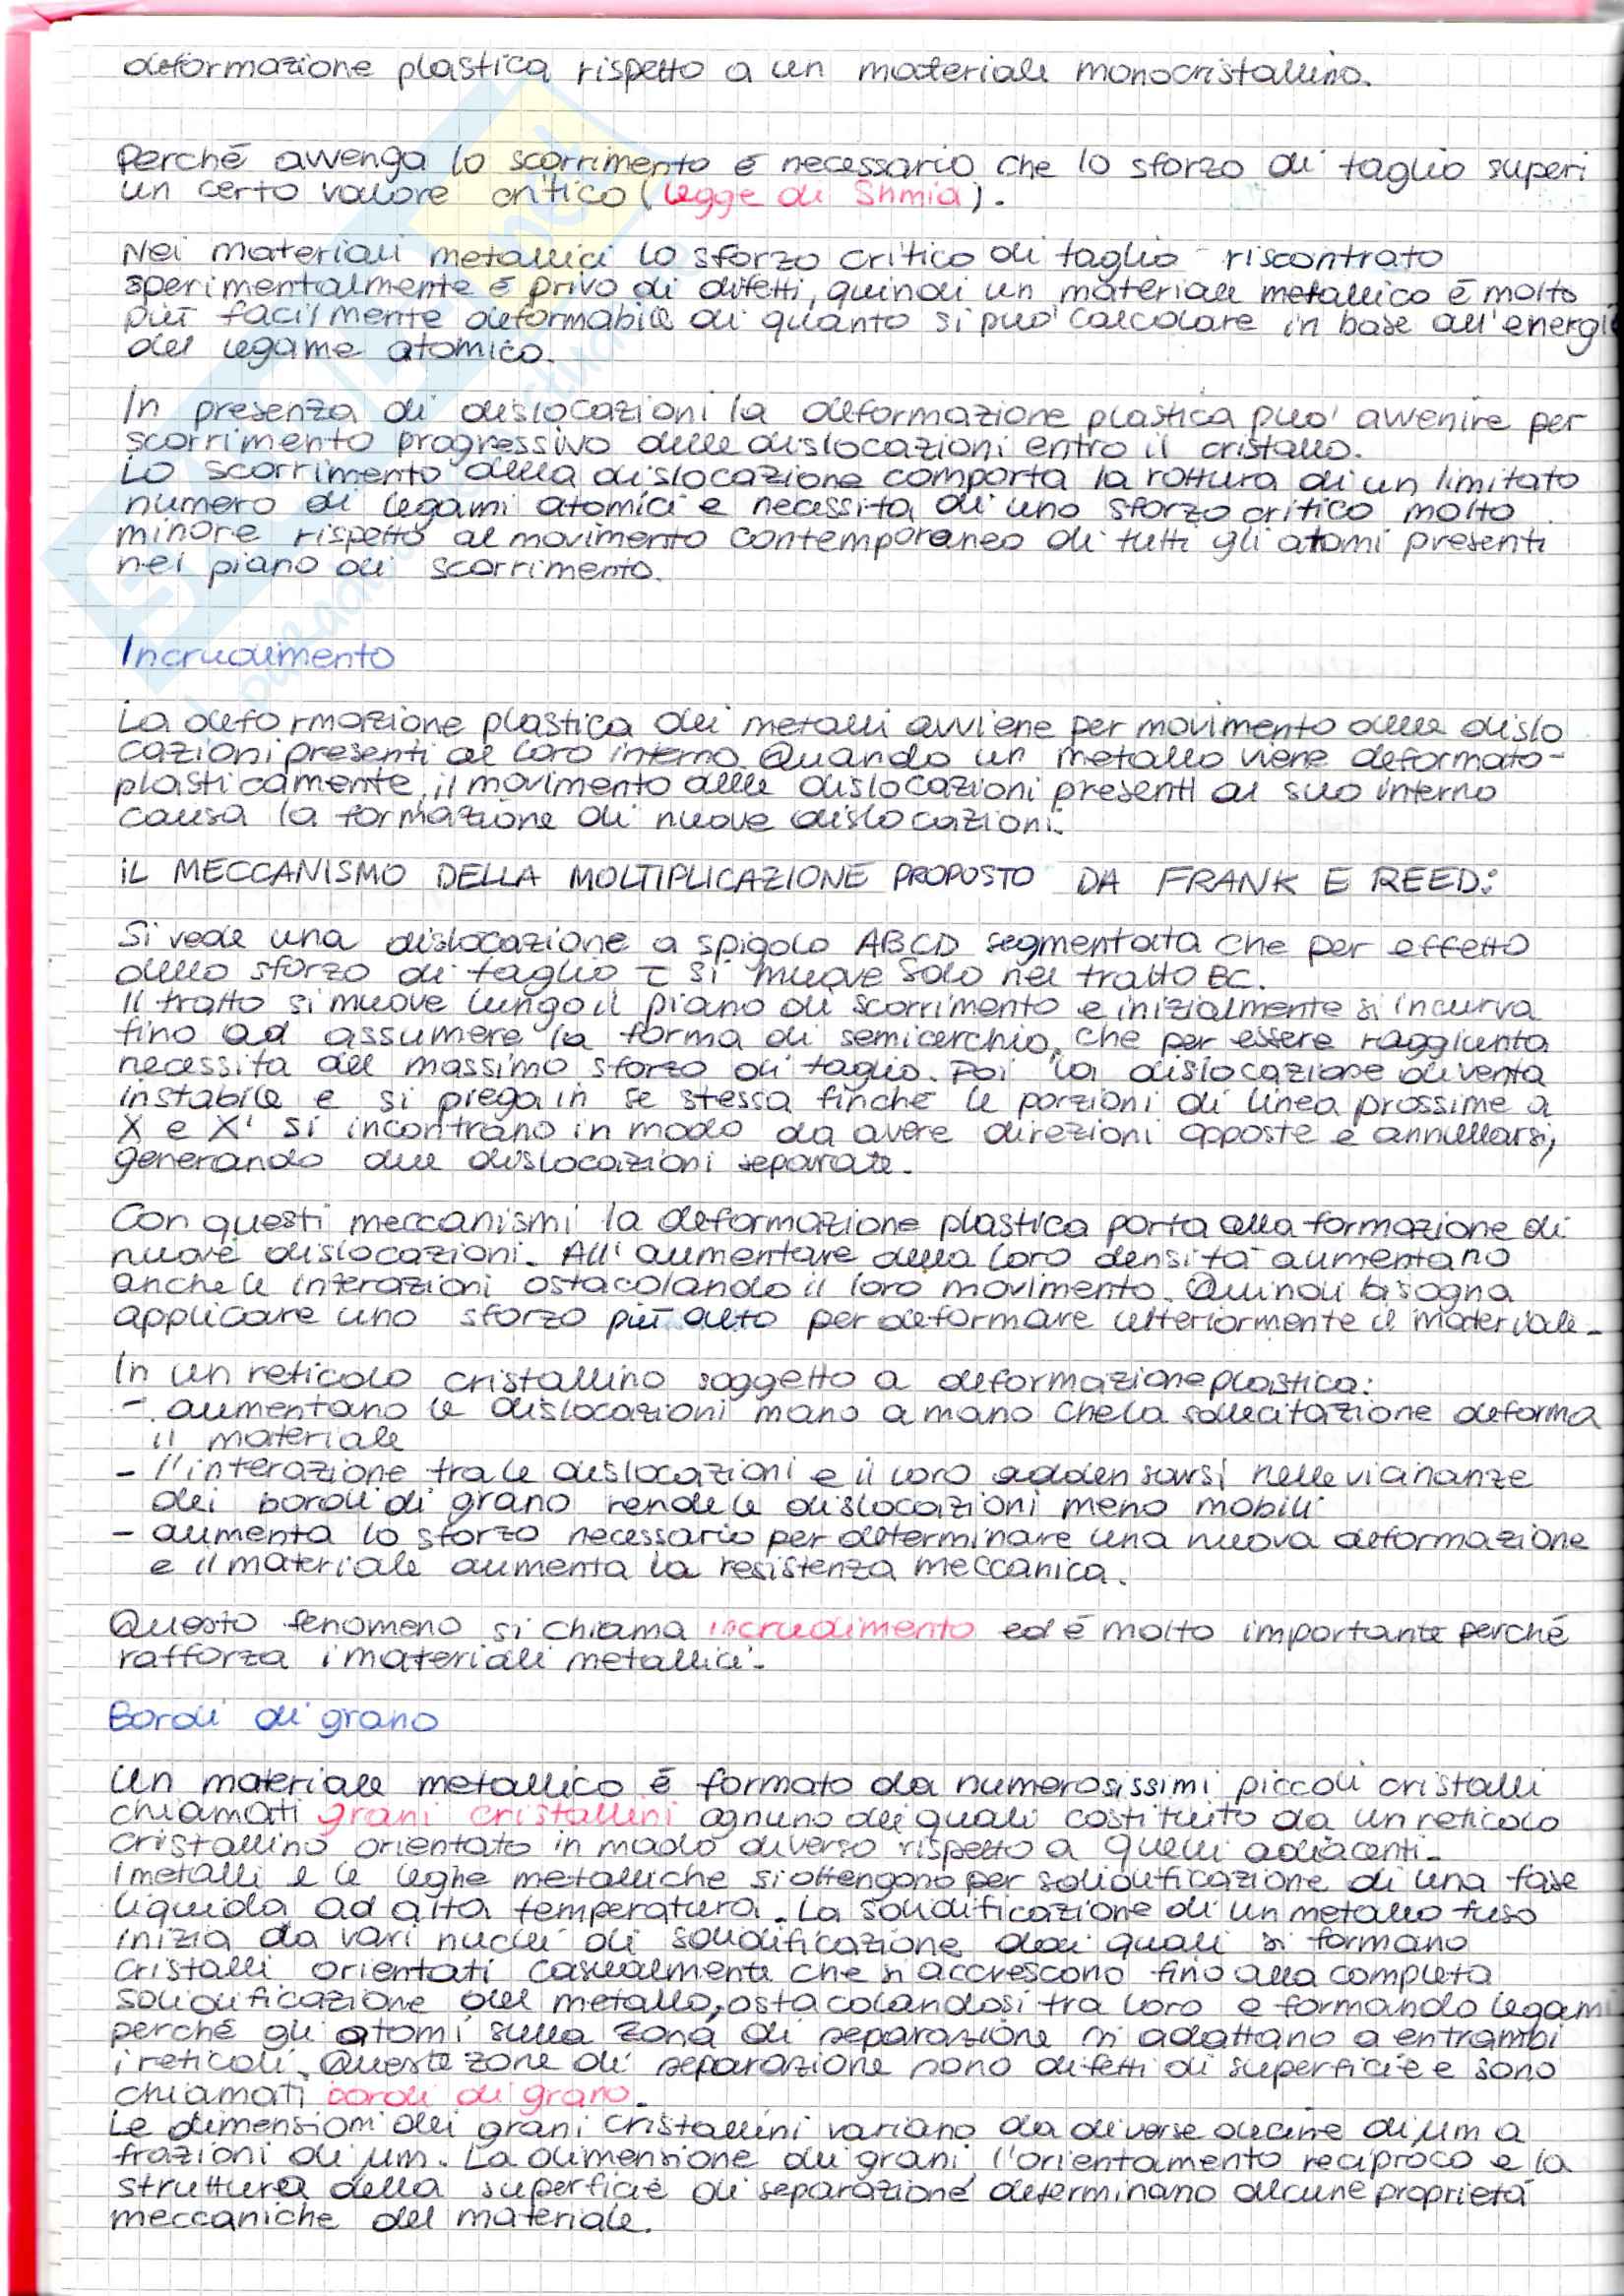 deformazione plastica rispetto a un materiale monocristallino.
Perché avvenga lo scorrimento è necessario che lo sforzo di taglio superi
un certo valore critico (legge di Shmid).
Nei materiali metallici lo sforzo critico di taglio riscontrato
sperimentalmente è privo di difetti, quindi un materiale metallico è molto
più facilmente deformabile di quanto si può calcolare in base all'energi
del legame atomico.
In presenza di dislocazioni la deformazione plastica può avvenire per
scorrimento progressivo delle dislocazioni entro il cristallo.
Lo scorrimento della dislocazione comporta la rottura di un limitato
numero di legami atomici e necessita di uno sforzo critico molto
minore rispetto al movimento contemporaneo di tutti gli atomi presenti
nel piano di scorrimento.
Incrudimento
La deformazione plastica dei metalli avviene per movimento delle dislo
cazioni presenti al loro interno. Quando un metallo viene deformato
plasticamente, il movimento delle dislocazioni presenti al suo interno
causa la formazione di nuove dislocazioni.
IL MECCANISMO DELLA MOLTIPLICAZIONE PROPOSTO DA FRANK E REED:
Si vede una dislocazione a spigolo ABCD segmentata che per effetto
dello sforzo di taglio τ si muove solo nel tratto BC.
Il tratto si muove lungo il piano di scorrimento e inizialmente si incurva
fino ad assumere la forma di semicerchio, che per essere raggiunta
necessita del massimo sforzo di taglio. Poi la dislocazione diventa
instabile e si piega in se stessa finché le porzioni di linea prossime a
X e X' si incontrano in modo da avere direzioni opposte e annullarsi,
generando due dislocazioni separate.
Con questi meccanismi la deformazione plastica porta alla formazione di
nuove dislocazioni. All'aumentare della loro densità aumentano
anche le interazioni ostacolando il loro movimento. Quindi bisogna
applicare uno sforzo più alto per deformare ulteriormente il materiale.
In un reticolo cristallino soggetto a deformazione plastica:
- aumentano le dislocazioni mano a mano che la sollecitazione deforma
il materiale
- l'interazione tra le dislocazioni e il loro addensarsi nelle vicinanze
dei bordi di grano rende le dislocazioni meno mobili
- aumenta lo sforzo necessario per determinare una nuova deformazione
e il materiale aumenta la resistenza meccanica.
Questo fenomeno si chiama incrudimento ed è molto importante perché
rafforza i materiali metallici.
Bordi di grano
Un materiale metallico è formato da numerosissimi piccoli cristalli
chiamati grani cristallini ognuno dei quali costituito da un reticolo
cristallino orientato in modo diverso rispetto a quelli adiacenti.
I metalli e le leghe metalliche si ottengono per solidificazione di una fase
liquida ad alta temperatura. La solidificazione di un metallo fuso
inizia da vari nuclei di solidificazione dai quali si formano
cristalli orientati casualmente che si accrescono fino alla completa
solidificazione del metallo, ostacolandosi tra loro e formando legami
perché gli atomi sulla zona di separazione si adattano a entrambi
i reticoli. Queste zone di separazione sono difetti di superficie e sono
chiamati bordi di grano.
Le dimensioni dei grani cristallini variano da diverse decine di µm a
frazioni di µm. La dimensione dei grani, l'orientamento reciproco e la
struttura della superficie di separazione determinano alcune proprietà
meccaniche del materiale.